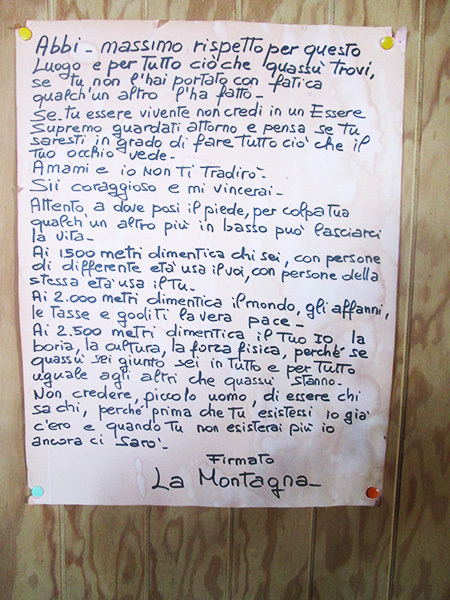 Abbi - massimo rispetto per questo
Luogo e per Tutto ciò che quassù trovi,
se tu non l'hai portato con fatica
qualch'un altro l'ha fatto-
Se tu essere vivente non credi in un Essere
Supremo guardati attorno e pensa se tu
saresti in grado di fare Tutto ciò che il
Tuo occhio vede-
Amami e io non Ti Tradirò-
Sii coraggioso e mi vincerai-
Attento a dove posi il piede, per colpa tua
qualch'un altro più in basso può lasciarci
la vita-
Ai 1.500 metri dimentica chi sei, con persone
di differente età usa il voi, con persone della
stessa età usa il Tu-
Ai 2.000 metri dimentica il mondo, gli affanni,
le tasse e goditi la vera pace-
Ai 2.500 metri dimentica il Tuo Io, la
boria, la cultura, la forza fisica, perché se
quassù sei giunto sei in Tutto e per Tutto
uguale agli altri che quassù stanno-
Non credere, piccolo uomo, di essere chi
sa chi, perché prima che tu esistessi io già
c'ero e quando tu non esisterai più io
ancora ci sarò-
Firmato
La Montagna-